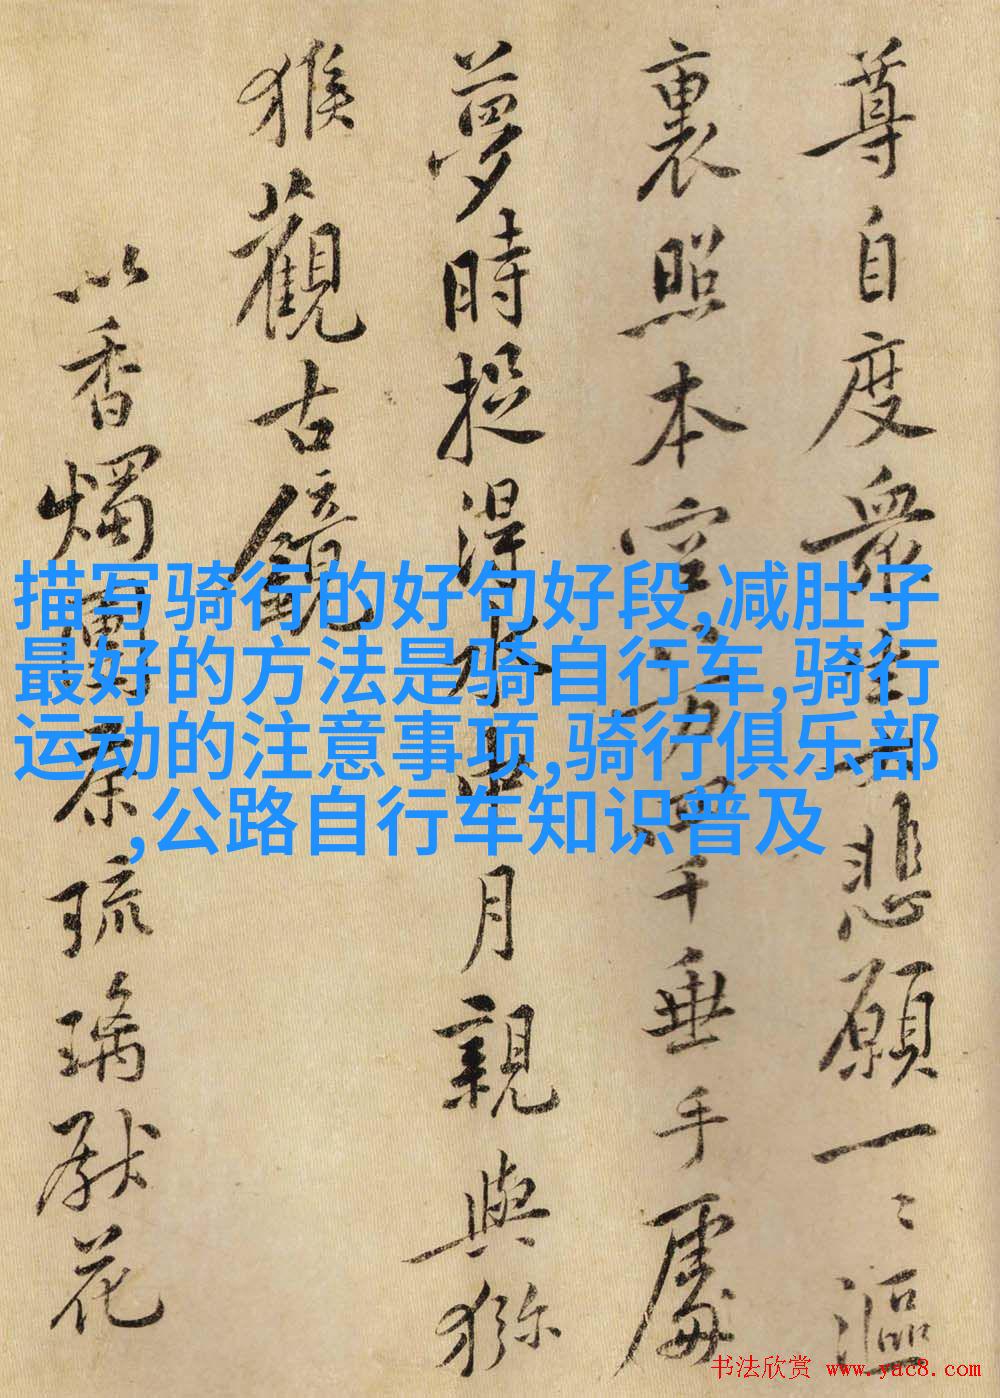 尊自度衆生悲願一〻漚
裏照本空方千垂手處
夢時捉得水中月親與獼
猴觀古鏡
以香燭團茶琉璃獻花
描写骑行的好句好段,减肚子
最好的方法是骑自行车,骑行
运动的注意事项,骑行俱乐部
,公路自行车知识普及
书法欣赏 www.yac8.com